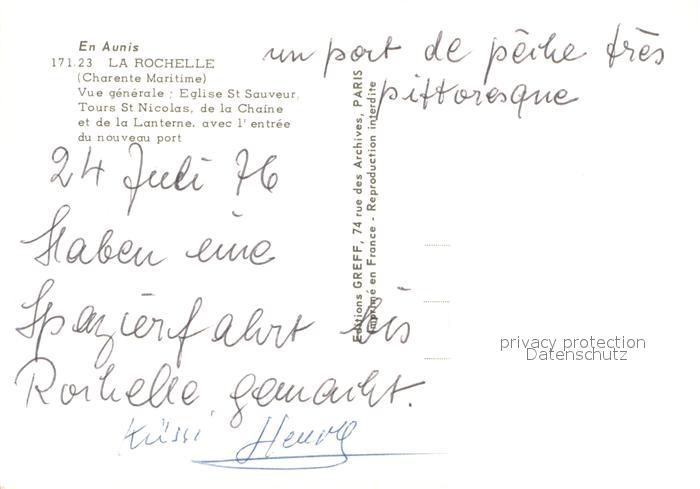 En Aunis
171.23 LA ROCHELLE
(Charente Maritime)
Vue générale ; Eglise St Sauveur,
Tours St Nicolas, de la Chaîne
et de la Lanterne, avec l'entrée
du nouveau port
un port de pêche très
pittoresque
24 Juli 76
Haben eine
Spazierfahrt bis
Rochelle gemacht.
Küssi
Editions GREFF, 74 rue des Archives, PARIS
Imprimé en France - Reproduction interdite
privacy protection
Datenschutz